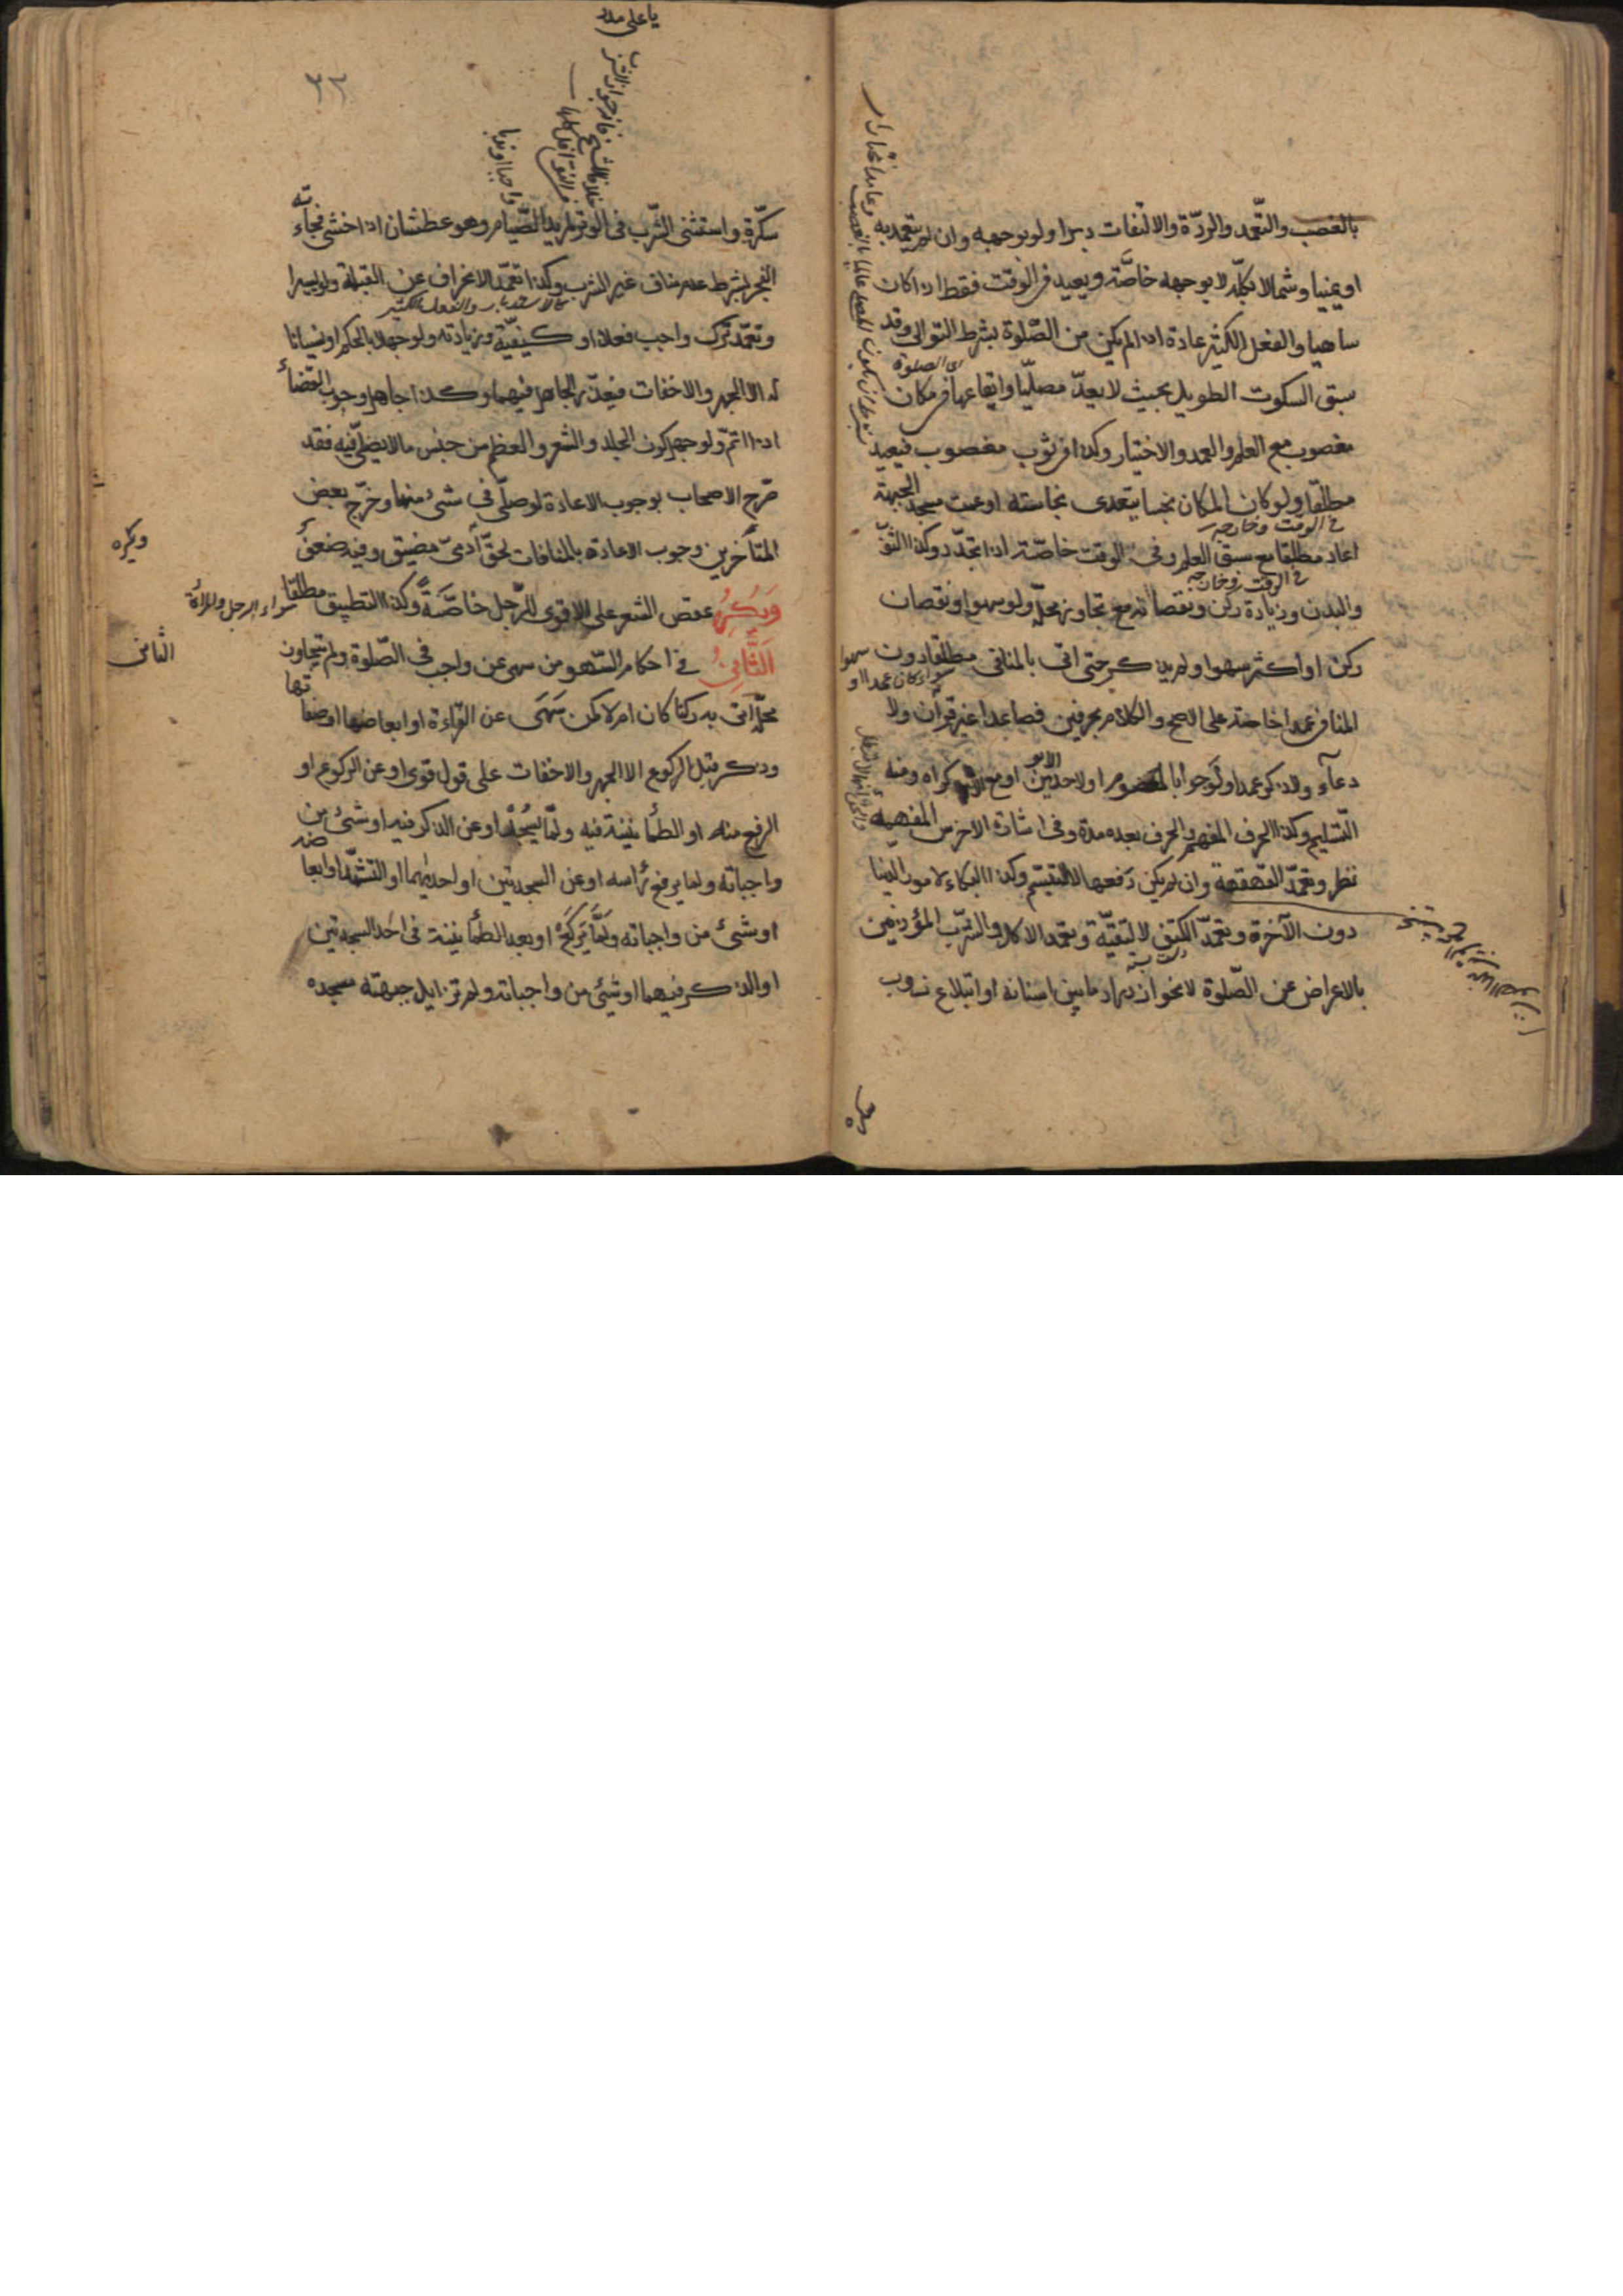 بالغصب والتعمد والردّة والالتفات دبرا ولو بوجهه وان لم يتعمد به
او يمينا وشمالا بكلّه لا بوجهه خاصّة ويعيد في الوقت فقط اذا كان
ساهيا والفعل الكثير عادة اذا لم يكن من الصّلوة بشرط التوالى وقد
سبق السكوت الطويل بحيث لا يعدّ مصلّيا وايقاعها فى مكان
اى الصلوة
مغصوب مع العلم والعمد والاختيار وكذا فى ثوب مغصوب فيعيد
مطلقا ولو كان المكان نجسا يتعدى نجاسته او نجست مسجد الجبهة
فى الوقت وخارجه
اعاد مطلقا مع سبق العلم وفى الوقت خاصّة اذا تجدّد وكذا الثوب
فى الوقت وخارجه
والبدن وزيادة ركن ونقصانه مع تجاوز محلّه ولو سهوا ونقصان
ركن او اكثر سهوا ولم يذكر حتى اتى بالمنافى مطلقا دون
سواء كان عمدا او سهوا
المنافى عمدا خاصة على الاصح والكلام بحرفين فصاعدا غير قرآن ولا
دعاء ولا ذكر عمدا ولو جوابا لمعصوم او لاحد الابوين او مع اكراه ومنه
التسليم وكذا الحرف المفهم والحرف بعده مدة وفى اشارة الاخرس المفهمة
نظر وتعمّد القهقهة وان لم يمكن دفعها لا التبسّم وكذا البكاء لامور الدنيا
دون الآخرة وتعمّد الكتف لا لتقيّة وتعمد الاكل والشرب المؤذنين
بالاعراض عن الصّلوة لا نحو ازدراد ما بين اسنانه او ابتلاع ذوب
يا على مدد
٣٢
سكّرة واستثنى الشّرب فى الوتر لمريد الصّيام وهو عطشان اذا خشى فجاءة
الفجر بشرط عدم مناف غير الشرب وكذا تعمّد الانحراف عن القبلة ولو يسيرا
كالاستدبار والفعل الكثير
وتعمّد ترك واجب فعلا او كيفيّة وزيادته ولو جهلا بالحكم او نسيانا
له الا الجهر والاخفات فيعذر الجاهل فيهما وكذا جاهل وجوب القضاء
اذا اتمّ ولو جهل كون الجلد والشعر والعظم من جنس ما لا يصلّى فيه فقد
صرّح الاصحاب بوجوب الاعادة لو صلّى فى شئ منها وخرّج بعض
المتأخرين وجوب الاعادة بالمنافات لحقّ آدمىّ مضيق وفيه ضعف
وَيُكْرَهُ عقص الشعر على الاقوى للرّجل خاصّةً وكذا التطبيق مطلقا
سواء الرجل والمرأة
ويكره
اَلثَّانِى فى احكام السّهو من سهى عن واجب فى الصّلوة ولم يتجاوز
الثانى
محلّه اتى به ركنا كان ام لا كمن سَهَى عن القراءة او ابعاضها او صفاتها
وذكر قبل الركوع الا الجهر والاخفات على قول قوى او عن الركوع او
الرفع منه او الطمأنينة فيه ولمّا يَسْجُدْ او عن الذكر فيه او شئ من
واجباته ولما يرفع رأسه او عن السجدتين او احديهما او التشهّد او ابعاضه
او شئ من واجباته ولَمَّا يَرْكَعْ او بعد الطمأنينة فى احد السجدتين
او الذكر فيهما او شئ من واجباته ولم تزايل جبهته مسجده